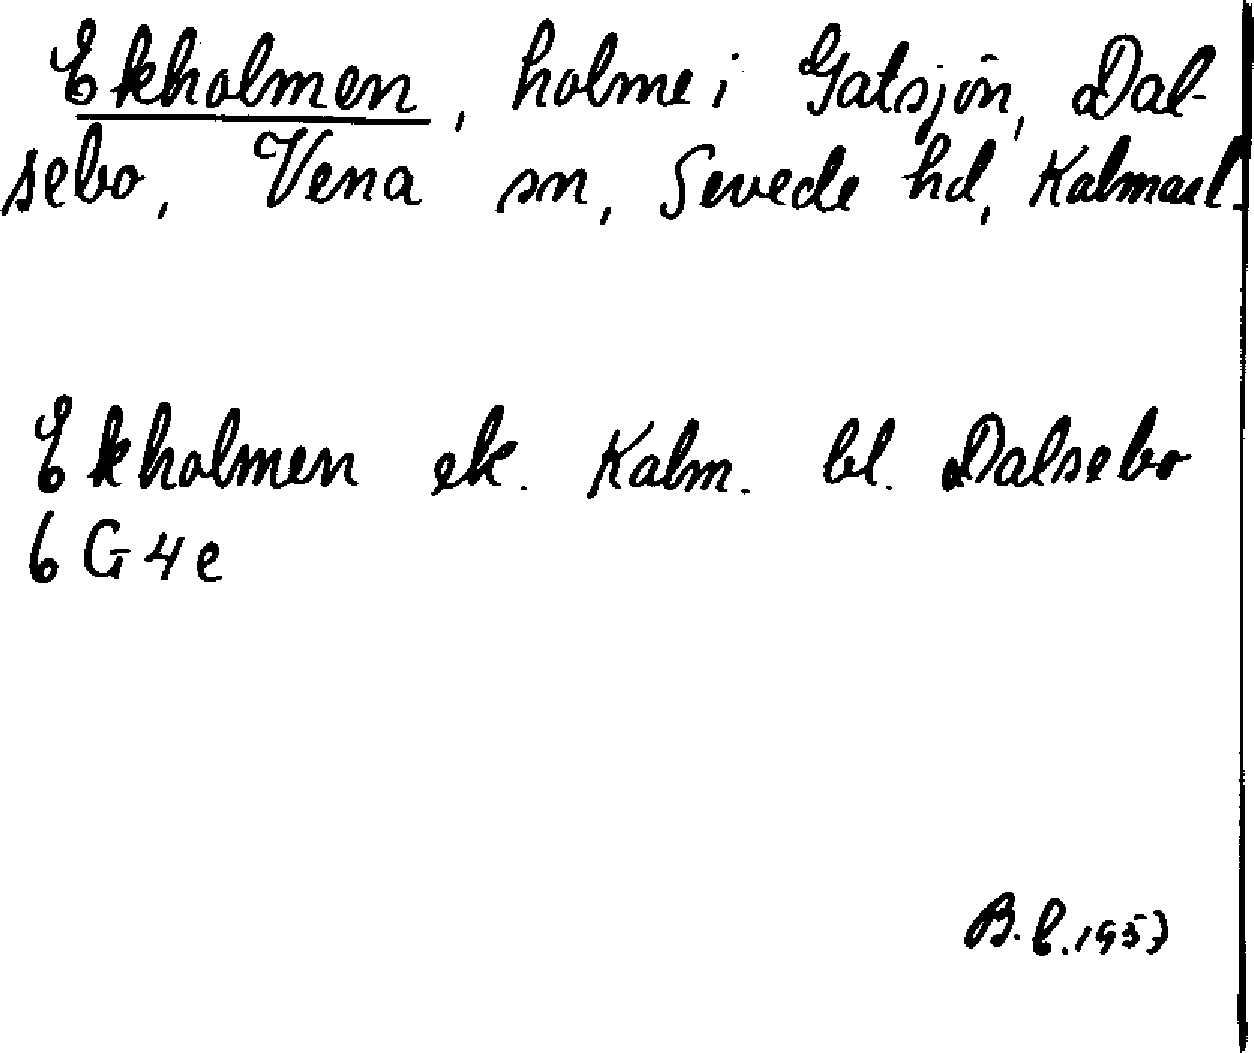 Ekholmen, holme i Gatsjön, Dal-
sebo, Vena sn, Sevede hd, Kalmarl.
Ekholmen ek. Kalm. bl. Dalsebo
6 G 4 e
B. C. 1953